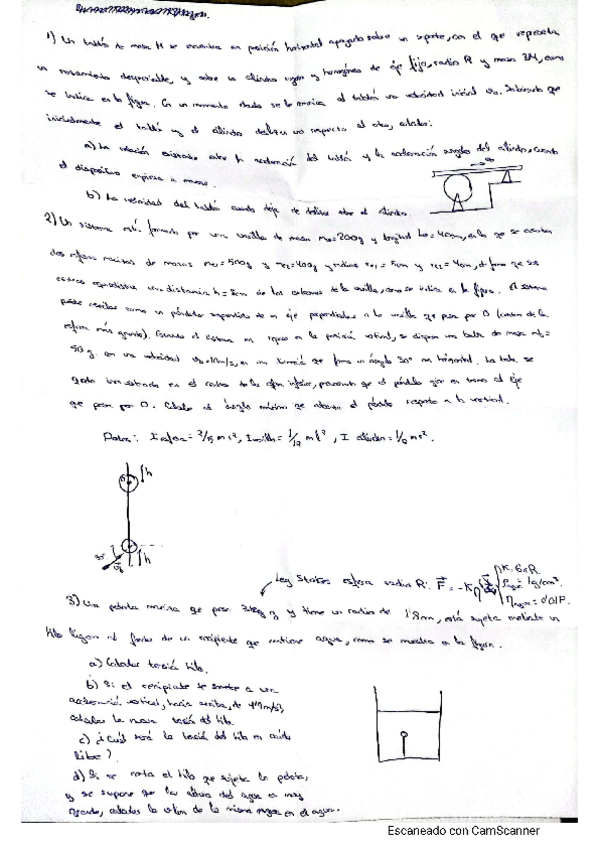 1) Un tablón de masa M se encuentra en posición horizontal apoyado sobre un soporte, con el que representa
un rozamiento despreciable, y sobre un cilindro rugoso y homogéneo de eje fijo, radio R y masa 3M, como
se indica en la figura. En un momento dado se le comunica al tablón una velocidad inicial v₀. Sabiendo que
inicialmente el tablón y el cilindro deslizan uno respecto al otro, calcular:
a) La relación existente entre la aceleración del tablón y la aceleración angular del cilindro, cuando
el dispositivo empieza a moverse.
b) La velocidad del tablón cuando deja de deslizar sobre el cilindro
2) Un sistema está formado por una varilla de masa m=200g y longitud L=40cm, en la que se encuentran
dos esferas macizas de masas =500g y =400g y radios = 5cm y = 4cm, de forma que sus
centros equidistan una distancia h=8cm de los extremos de la varilla, como se indica en la figura. El sistema
puede oscilar como un péndulo suspendido de un eje perpendicular a la varilla que pasa por O (centro de la
esfera más grande). Estando el sistema en reposo en la posición vertical, se dispara una bala de masa =
50g con una velocidad en una dirección que forma un ángulo 30° con horizontal. La bala se
queda incrustada en el centro de la esfera inferior, provocando que el péndulo gire en torno al eje
que pasa por O. Calcular el ángulo máximo que alcanza el péndulo respecto a la vertical.
Datos: I esfera = 2/5 mr², I varilla = 1/12 ml², I cilindro = 1/2 mr².
h
30° h
Ley Stokes esfera radio R: K=6πR
3) Una pelota maciza que pesa g y tiene un radio de 1'8mm, está sujeta mediante un
hilo ligero al fondo de un recipiente que contiene agua, como se muestra en la figura.
a) Calcular tensión hilo.
b) Si el recipiente se somete a una
aceleración vertical, hacia arriba, de
calcular la nueva tensión del hilo.
c) ¿Cuál será la tensión del hilo en caída
libre?
d) Si se corta el hilo que sujeta la pelota,
y se supone que la altura del agua es muy
grande, calcular la v.lim de la misma en el agua.
Escaneado con CamScanner